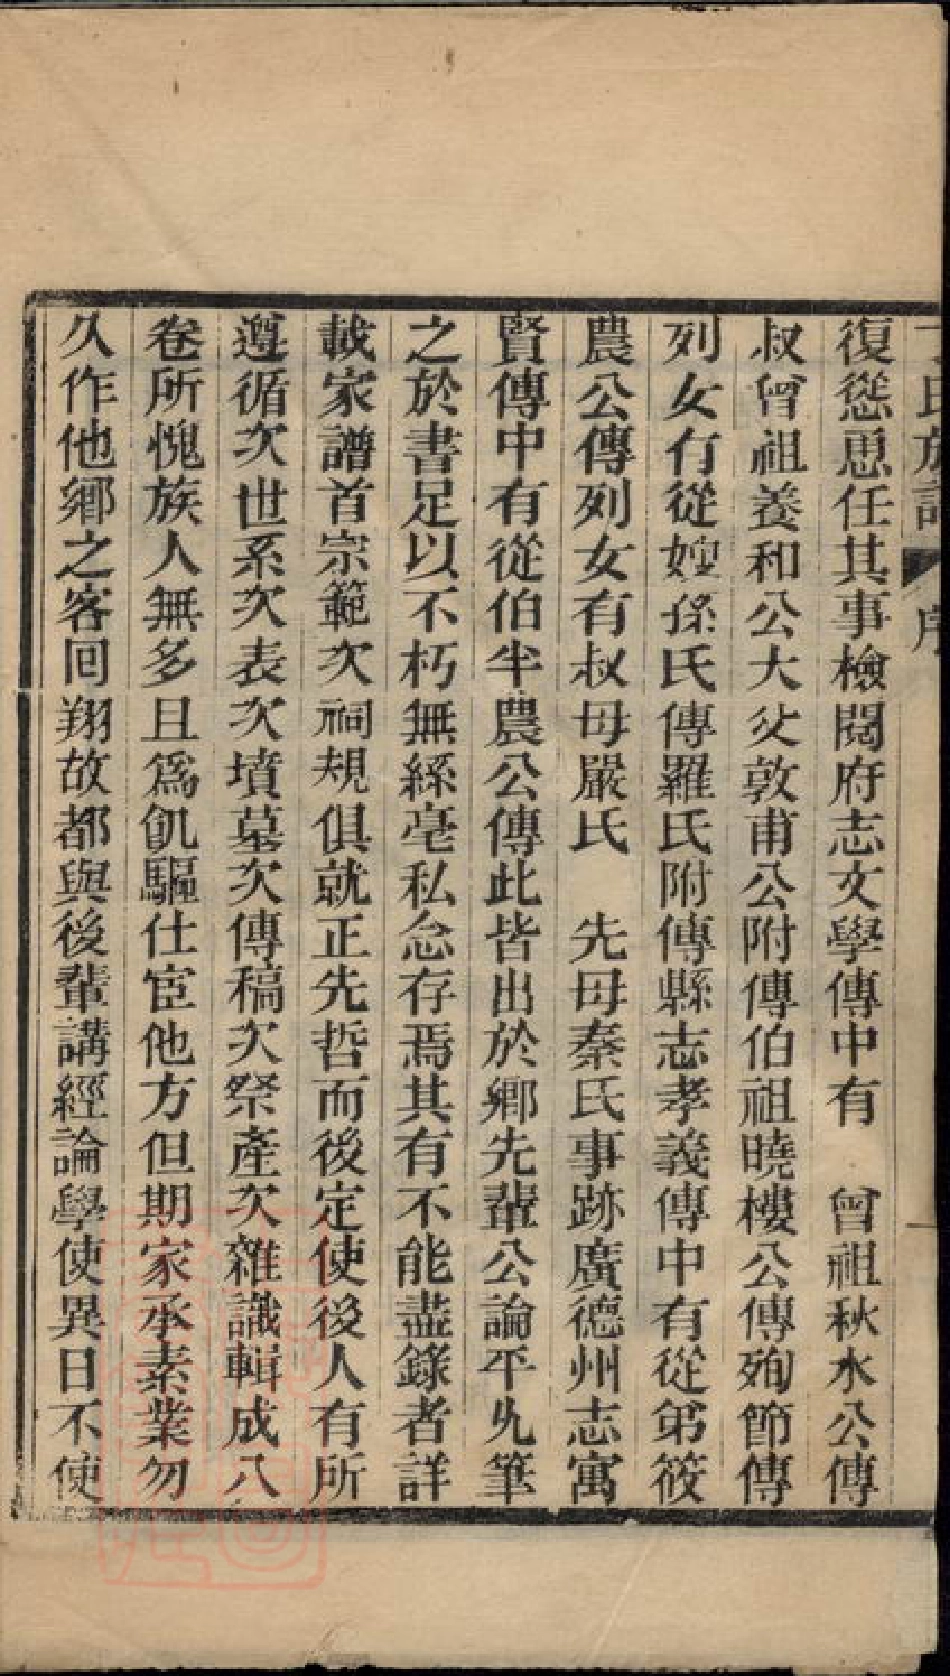 丁氏族譜 序
復慫恿任其事檢閱府志文學傳中有 曾祖秋水公傳
叔曾祖養和公大父敦甫公附傳伯祖曉樓公傳殉節傳
列女有從嫂孫氏傳羅氏附傳縣志孝義傳中有從弟筱
農公傳列女有叔母嚴氏 先母秦氏事跡廣德州志寓
賢傳中有從伯半農公傳此皆出於鄉先輩公論平允筆
之於書足以不朽無絲毫私念存焉其有不能盡錄者詳
載家譜首宗範次祠規俱就正先哲而後定使後人有所
遵循次世系次表次墳墓次傳稿次祭產次雜識輯成八
卷所愧族人無多且爲飢驅仕宦他方但期家承素業勿
久作他鄉之客回翔故都與後輩講經論學使異日不使